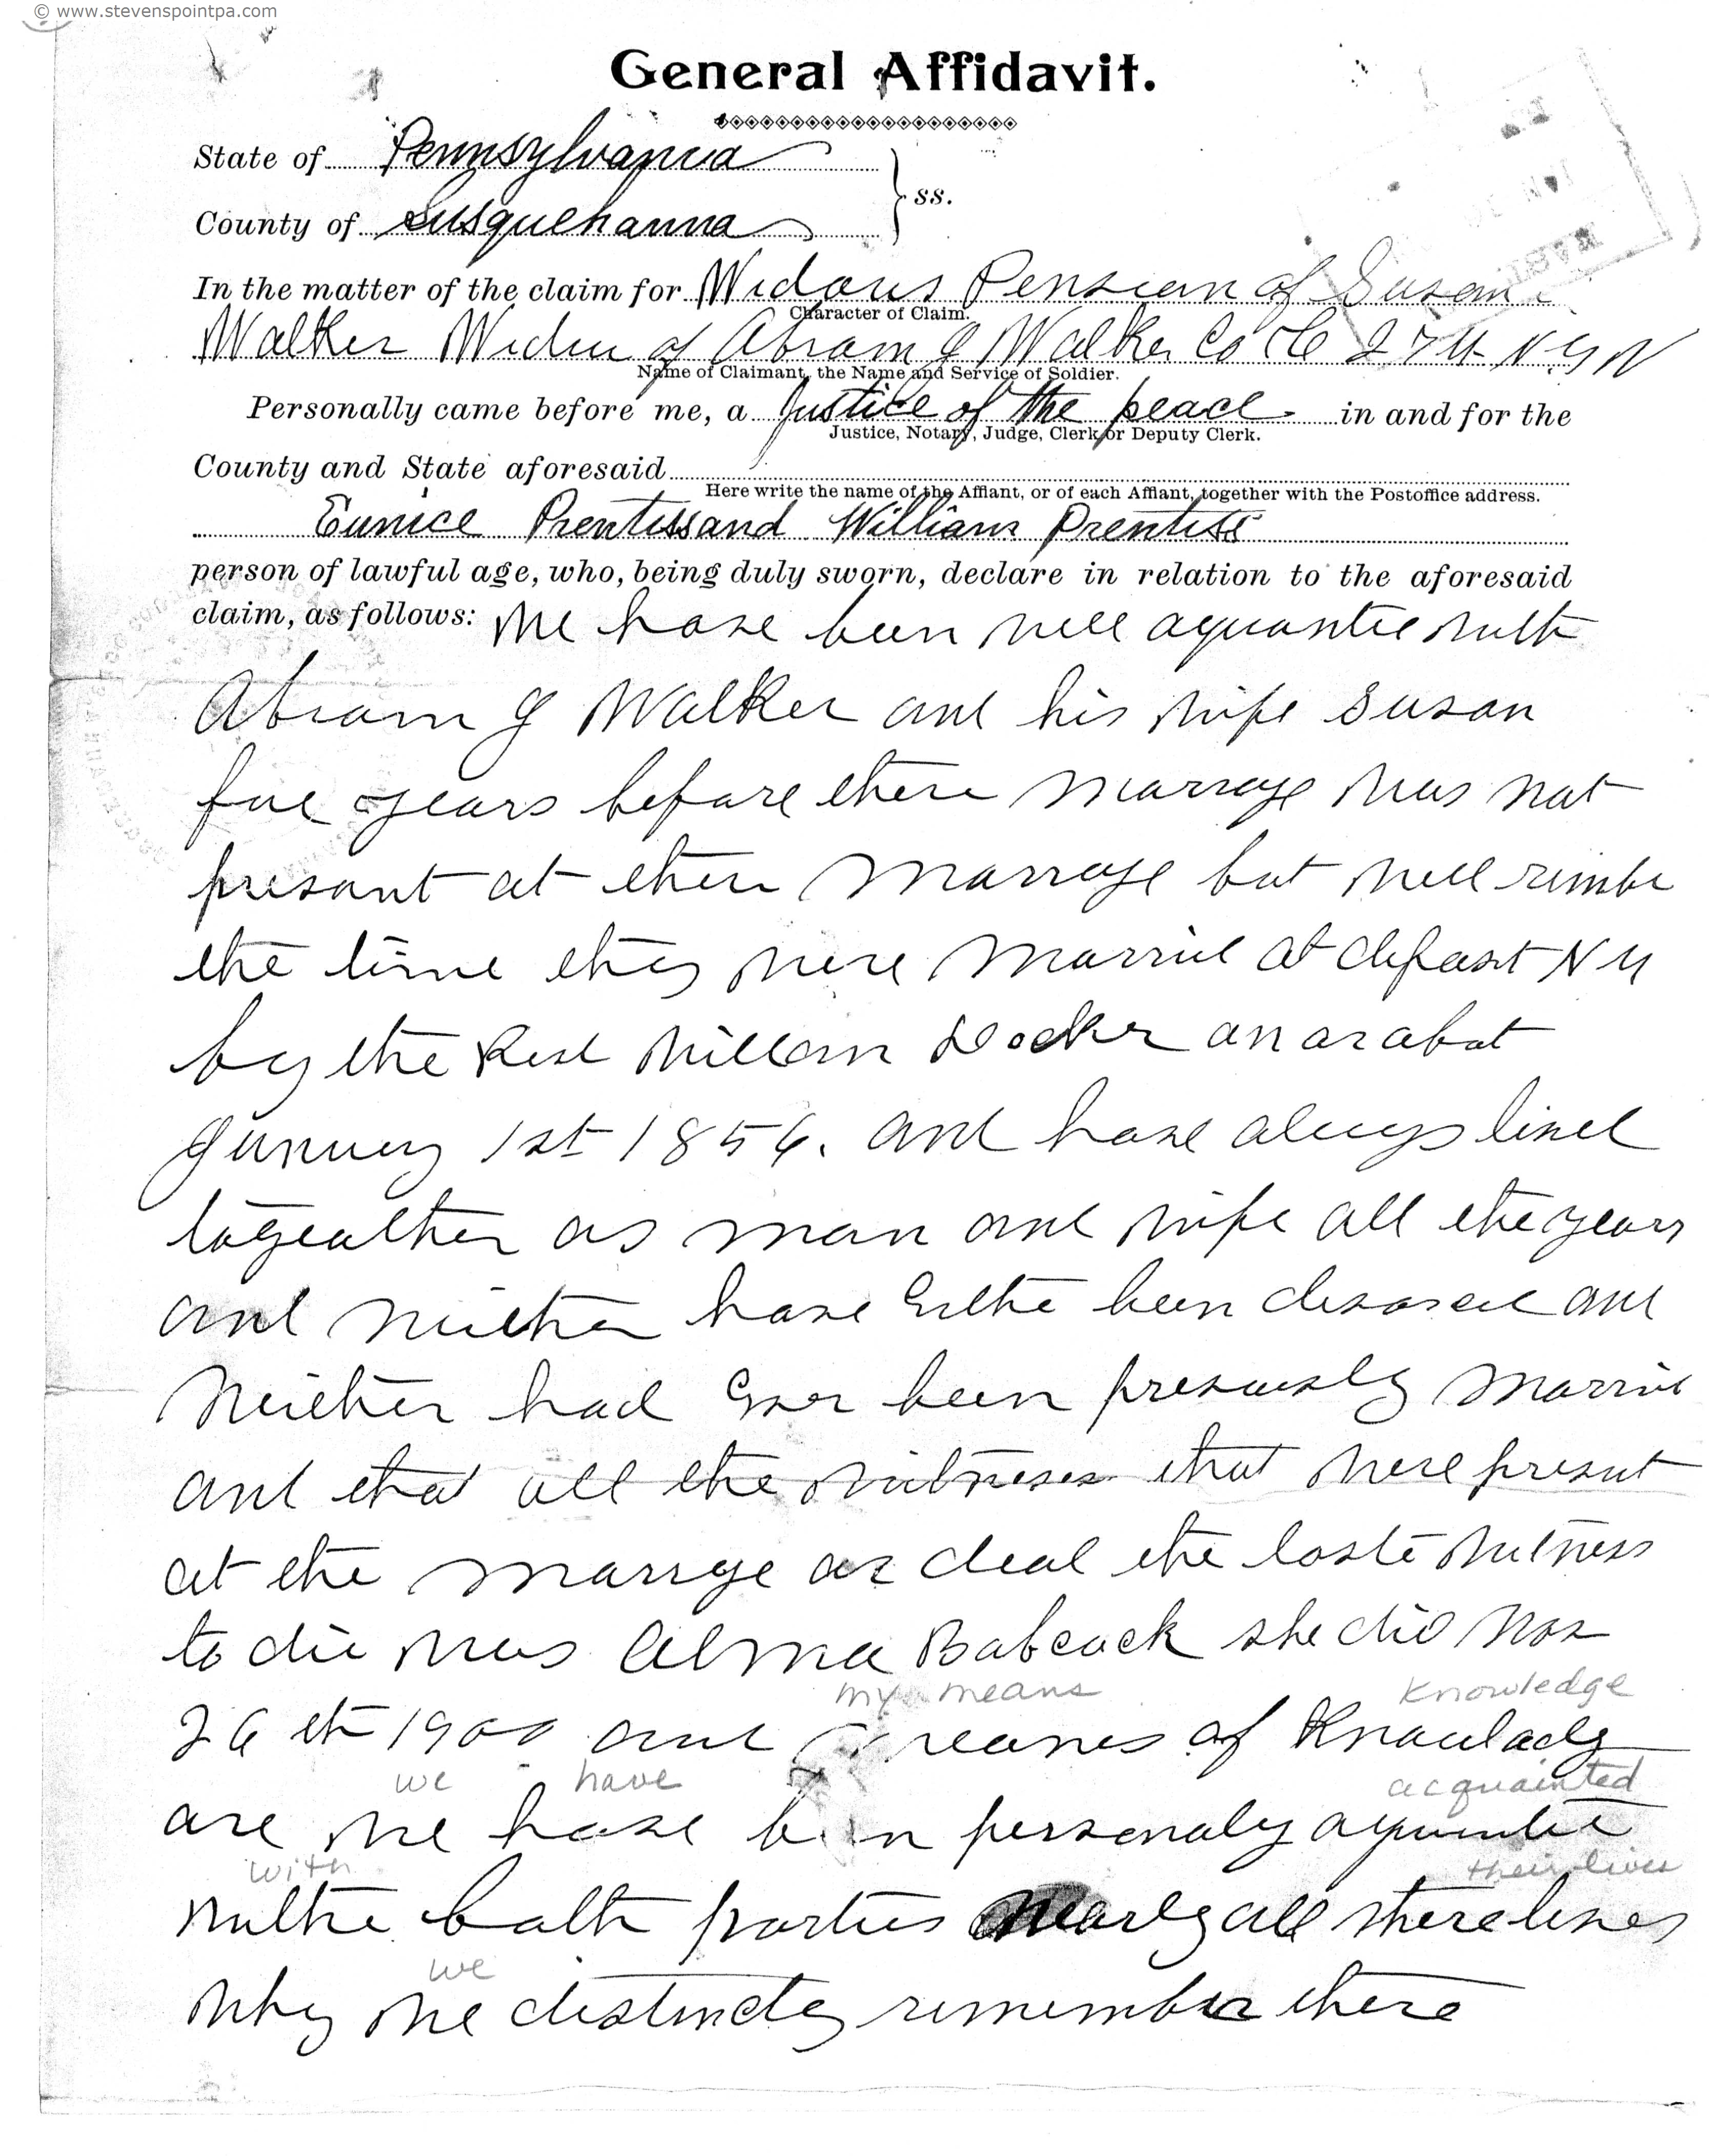 © www.stevenspointpa.com
General Affidavit.
State of Pennsylvania
ss.
County of Susquehanna
In the matter of the claim for Widows Pension of Susan
Character of Claim.
Walker Widow of Abram J Walker Co 27th N Y V
Name of Claimant, the Name and Service of Soldier.
Personally came before me, a Justice of the peace in and for the
Justice, Notary, Judge, Clerk or Deputy Clerk.
County and State aforesaid
Here write the name of the Affiant, or of each Affiant, together with the Postoffice address.
Eunice Prentiss and William Prentiss
person of lawful age, who, being duly sworn, declare in relation to the aforesaid
claim, as follows: We have been well aquantie with
Abram J Walker and his wife Susan
five years before there marrage was not
presant at there marrage but well rimbe
the time they were married at N Y
by the Rev William Docker on or about
January 1st 1856. and have always lived
togeather as man and wife all the years
and neither have been divorced and
neither had Ever been previously married
and that all the witneses that were present
at the marrage are dead the last witness
to die was Alma Babcock she died Nov
my means knowledge
26th 1900 and meanes of Knowladg
we have acquainted
are we have been personaly aquantie
with their lives
withe both parties nearly all there lives
we
why we distinctly rimember there